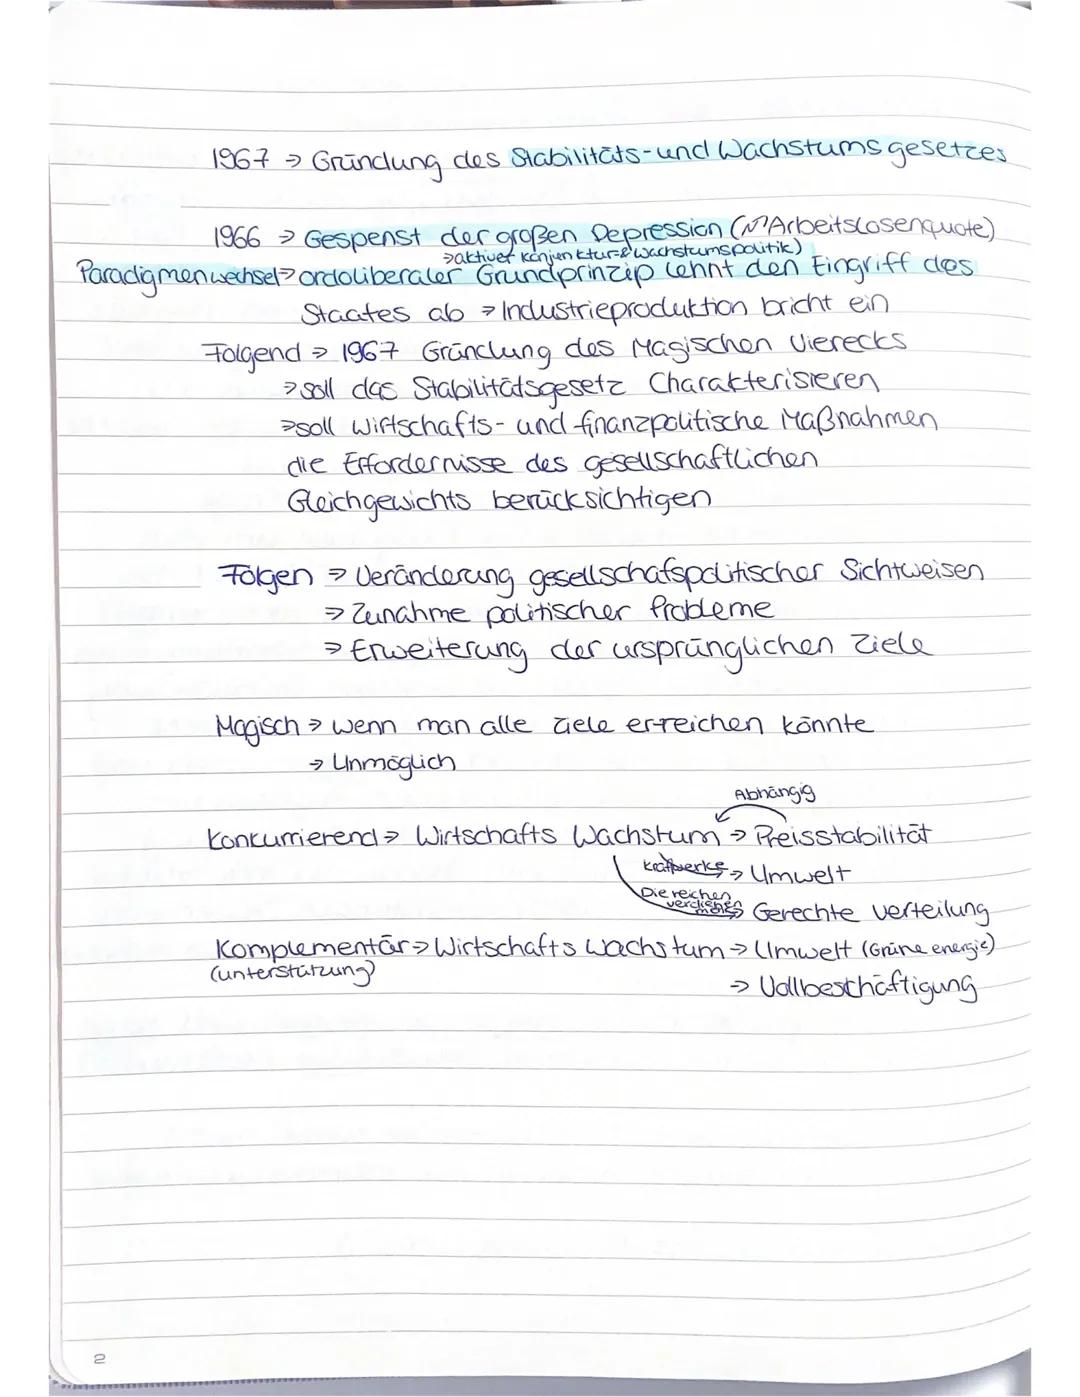 1967 → Gründung des Stabilitäts- und Wachstumsgesetzes
1966 → Gespenst der großen Depression (↗Arbeitslosenquote)
→aktiver Konjunktur & Wachstumspolitik)
Paradigmenwechsel→ ordoliberaler Grundprinzip lehnt den Eingriff des
Staates ab → Industrieproduktion bricht ein
Folgend → 1967 Gründung des Magischen Vierecks
→ soll das Stabilitätsgesetz Charakterisieren
→ soll wirtschafts- und finanzpolitische Maßnahmen
die Erfordernisse des gesellschaftlichen
Gleichgewichts berücksichtigen
Folgen → Veränderung gesellschafspolitischer Sichtweisen
→ Zunahme politischer Probleme
→ Erweiterung der ursprünglichen Ziele
Magisch → wenn man alle Ziele erreichen könnte
→ Unmöglich
Abhängig
Konkurrierend → Wirtschafts Wachstum → Preisstabilität
Kraftwerke → Umwelt
Die reichen
verdienen
mehr → Gerechte verteilung
Komplementär → Wirtschafts Wachstum → Umwelt (Grüne energie)
(unterstützung)
→ Vollbeschäftigung
2